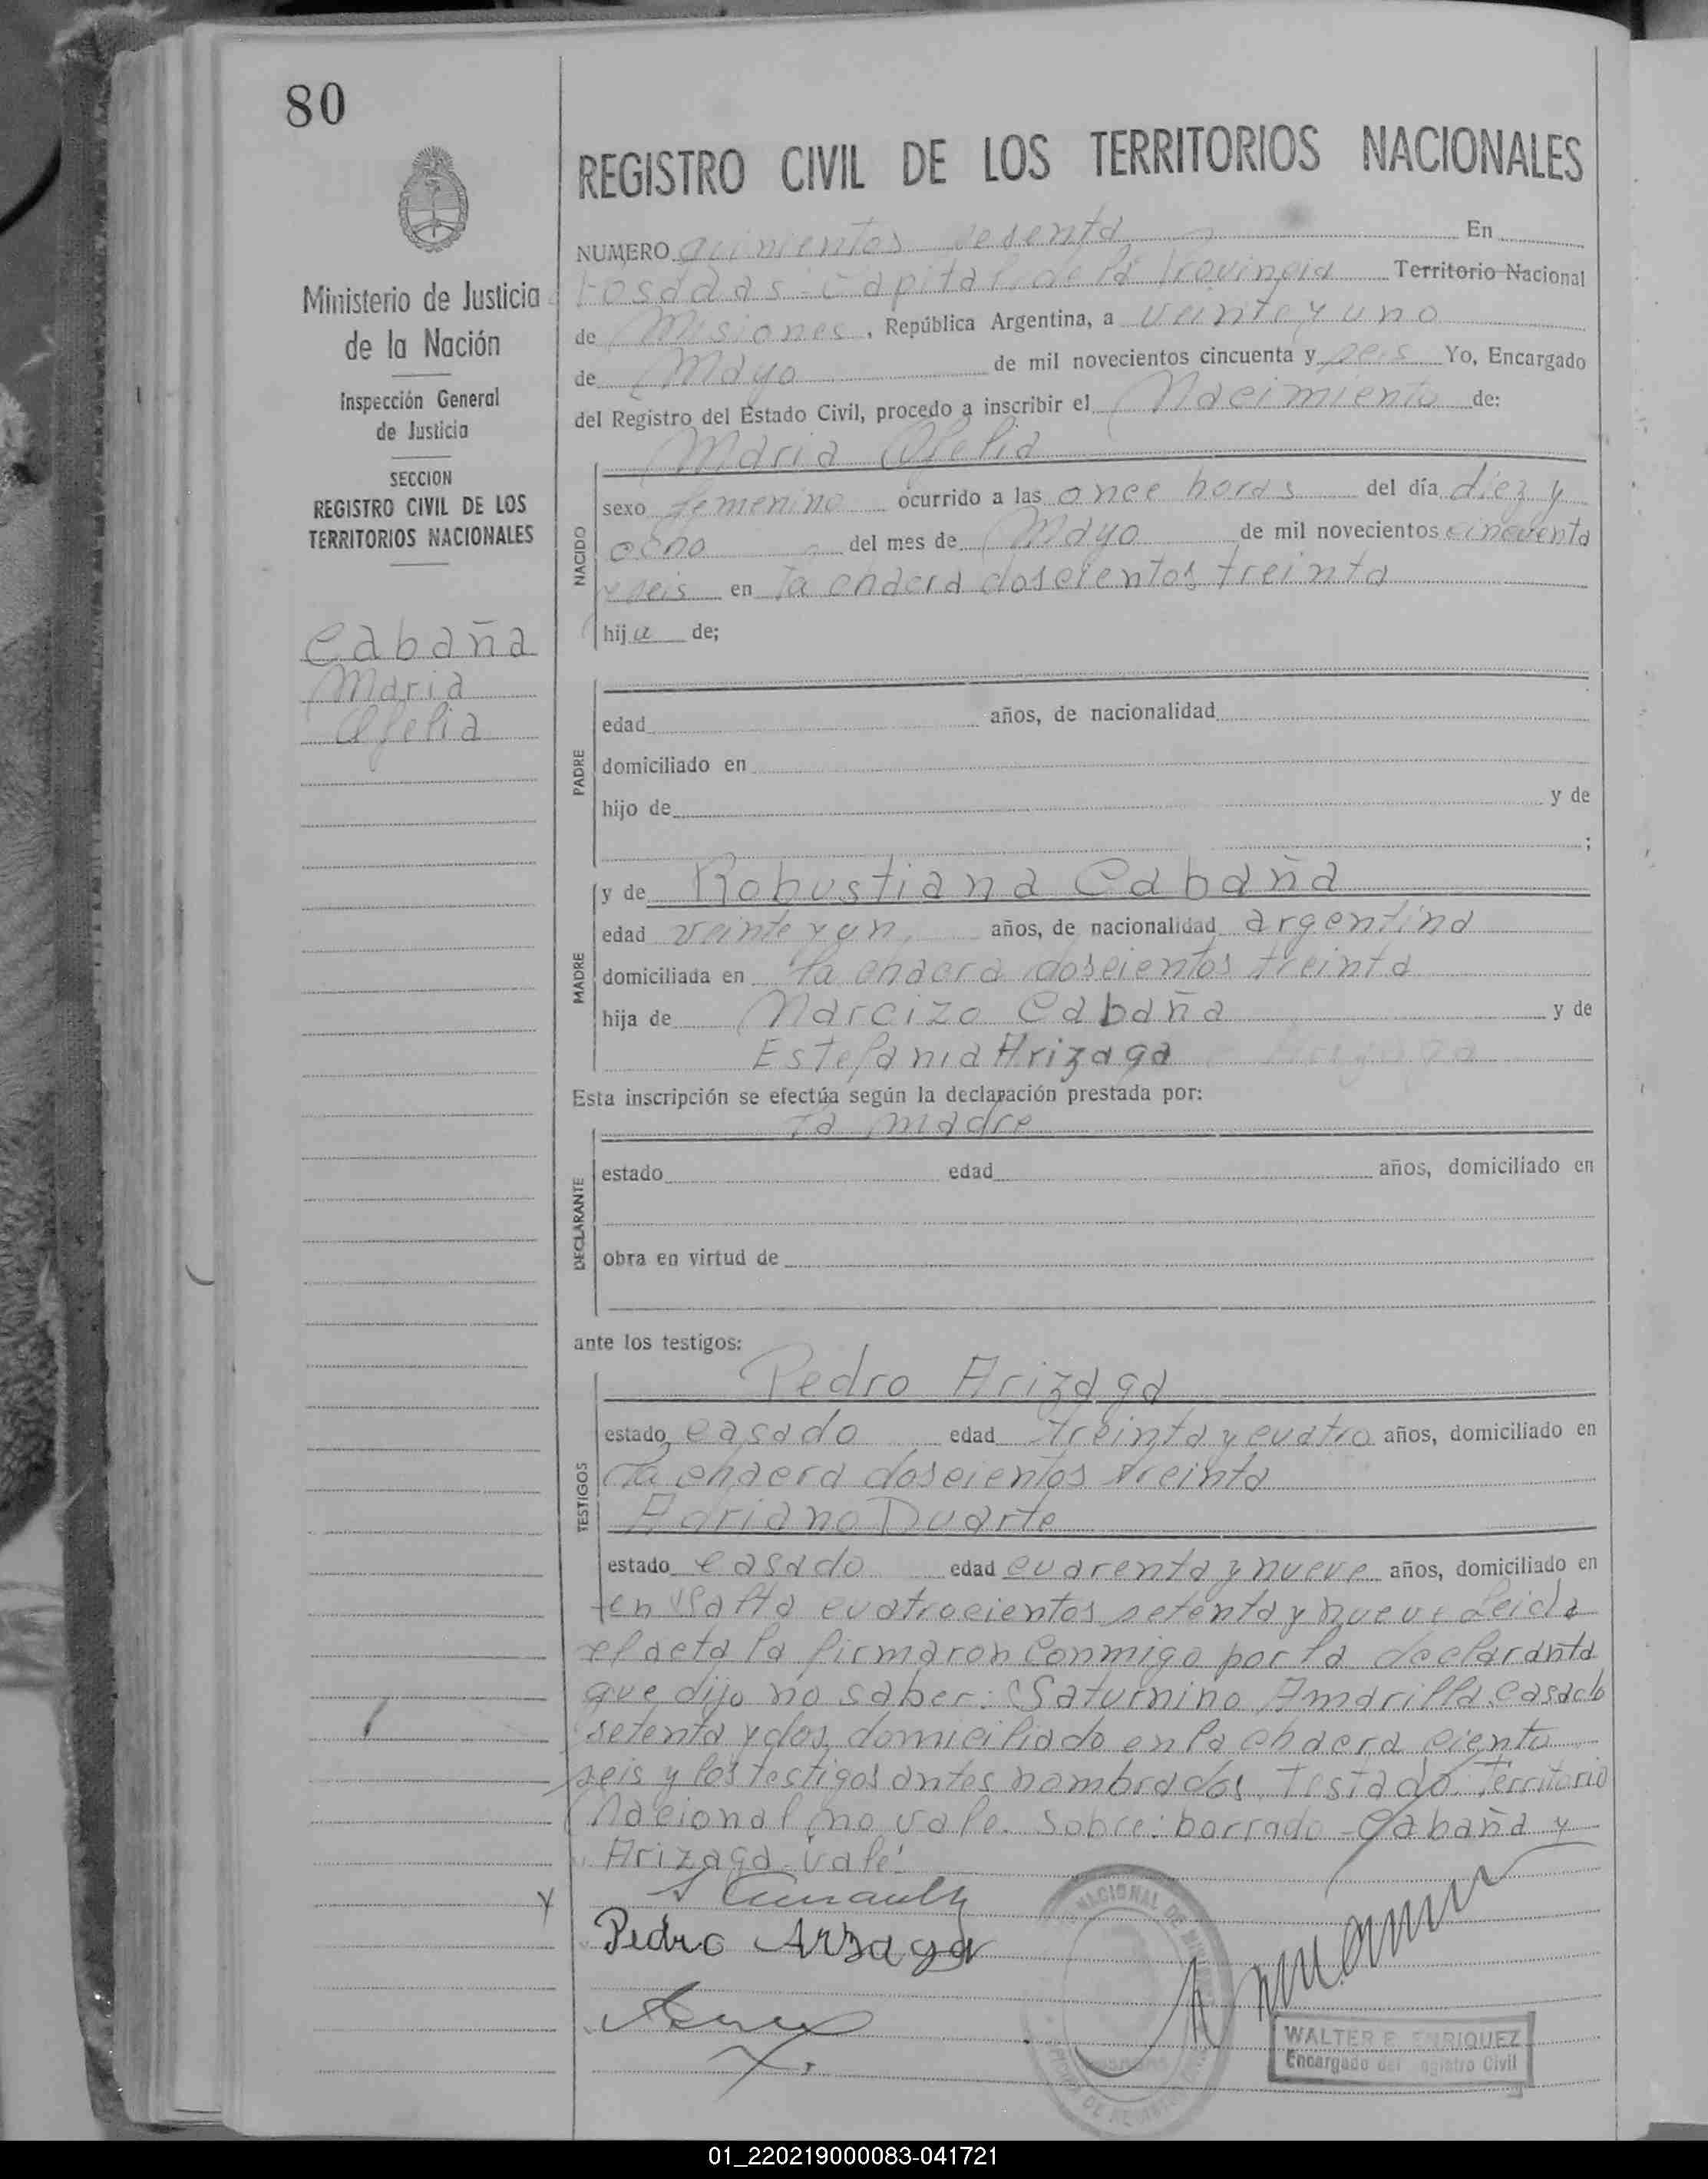 80
REGISTRO CIVIL DE LOS TERRITORIOS NACIONALES
Ministerio de Justicia
de la Nación
Inspección General
de Justicia
SECCION
REGISTRO CIVIL DE LOS
TERRITORIOS NACIONALES
Cabaña
Maria
Ofelia
NUMERO quinientos sesenta En
Posadas - Capital de la Provincia Territorio Nacional
de Misiones, República Argentina, a veinte y uno
de Mayo de mil novecientos cincuenta y seis Yo, Encargado
del Registro del Estado Civil, procedo a inscribir el Nacimiento de:
Maria Ofelia
NACIDO
sexo femenino ocurrido a las once horas del día diez y
ocho del mes de Mayo de mil novecientos cincuenta
y seis en la chacra doscientos treinta
hija de;
PADRE
edad años, de nacionalidad
domiciliado en
hijo de y de
;
MADRE
y de Robustiana Cabaña
edad veinte y un años, de nacionalidad argentina
domiciliada en la chacra doscientos treinta
hija de Marcizo Cabaña y de
Estefania Arizaga
Esta inscripción se efectúa según la declaración prestada por:
la madre
DECLARANTE
estado edad años, domiciliado en
obra en virtud de
ante los testigos:
Pedro Arizaga
TESTIGOS
estado casado edad treinta y cuatro años, domiciliado en
la chacra doscientos treinta
Adriano Duarte
estado casado edad cuarenta y nueve años, domiciliado en
en Salta cuatrocientos setenta y nueve Leida
el acta la firmaron conmigo por la declaranta
que dijo no saber: Saturnino Amarilla casado
setenta y dos, domiciliado en la chacra ciento
seis y los testigos antes nombrados. Testado: Territorio
Nacional no vale. Sobre: borrado - Cabaña y
Arizaga - vale.
Pedro Arzaga
WALTER E. ENRIQUEZ
Encargado del Registro Civil
01_220219000083-041721